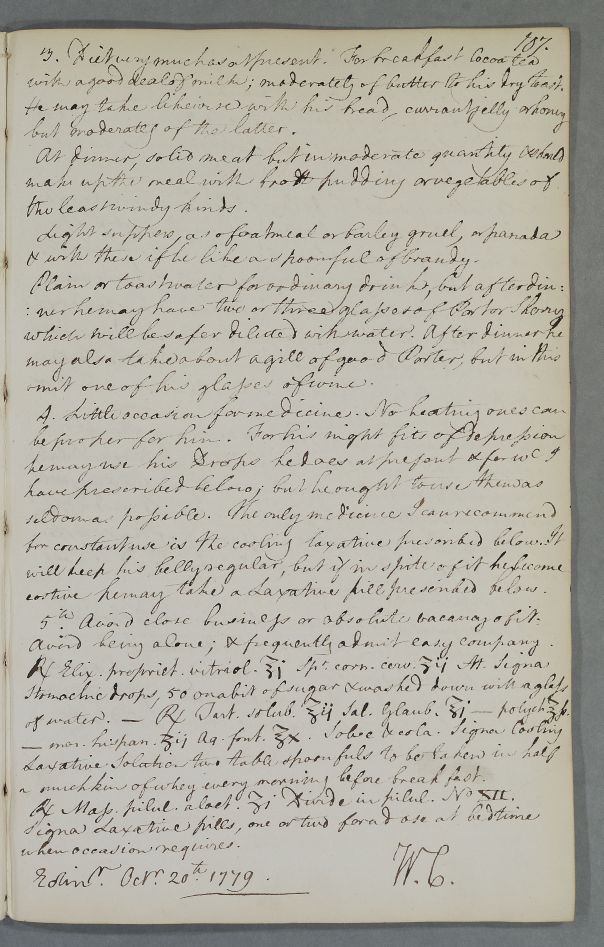 187.
3. Diet very much as at present. For breakfast Cocoa tea
with a good deal of milk; moderately of butter to his dry toast.
He may take likewise with his bread, currant jelly or honey
but moderately of the latter.
At dinner, solid meat but in moderate quantity & should
make up the meal with broth pudding or vegetables of
the least windy kinds.
Light suppers, as of oatmeal or barley gruel, or panada
& with these if he like a spoonful of brandy.
Plain or toast water for ordinary drinks, but after din:
:ner he may have two or three glasses of Port or Sherry
which will be safer diluted with water. After dinner he
may also take about a gill of good Porter, but in this
omit one of his glasses of wine.
4. Little occasion for medicines. No heating ones can
be proper for him. For his night fits of depression
he may use his Drops he does at present & for wc I
have prescribed below; but he ought to use them as
seldom as possible. The only medicine I can recommend
for constant use is the cooling laxative prescribed below. It
will keep his belly regular, but if in spite of it he become
costive he may take a Laxative pill prescribed below.
5th. Avoid close business or absolute vacancy of it.
Avoid being alone; & frequently admit easy company.
℞ Elix. propriet. vitriol. ℥j Spt. corn. cerv. ʒij M. Signa
Stomachic drops, 50 on a bit of sugar & washed down with a glass
of water. — ℞ Tart. solub. ℥ij Sal. Glaub. ℥j — polych. ℥ſs.
— man. hispan. ʒij Aq. font. ℥x. Solve & cola. Signa Cooling
Laxative Solution two table spoonfuls to be taken in half
a mutchkin of whey every morning before breakfast.
℞ Mass. pilul. aloet. ʒi Divide in pilul. No XII.
Signa Laxative pills, one or two for a dose at bedtime
when occasion requires.
Edinr. Octr. 20th 1779.
W. C.